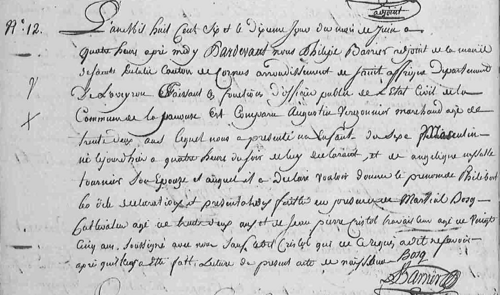 adjoint
N.° 12. L'an Mil huit Cent Six et le dixieme Jour du mois de Juin a
quatre heures après midy Pardevant nous Philipe Barrier adjoint de la mairie
Canton de Cornus arrondissement de Saint affrique Departement
De L'aveyron faisant les fonctions d'officier public de L'Etat Civil de la
Commune de la pauvre Est Comparu Augustin marchand agé de
trente deux ans Lequel nous a presenté un Enfant du Sexe Masculin
né aujourd'hui a quatre heures du de luy declarant, et de angelique
tournier Son Epouze et auquel il a declaré vouloir donner le prenom de Philibert
les dites declarations et presentations faittes en presence de Martial Borg
agé de trente deux ans et de Jean pierre Cristol travailleur agé de Vingt
Cinq ans. Soussigné avec nous Sauf Cristol qui de ce requis, a dit ne savoir
après qu'il leur a Eté fait Lecture du present acte de naissance Borg
Barrier